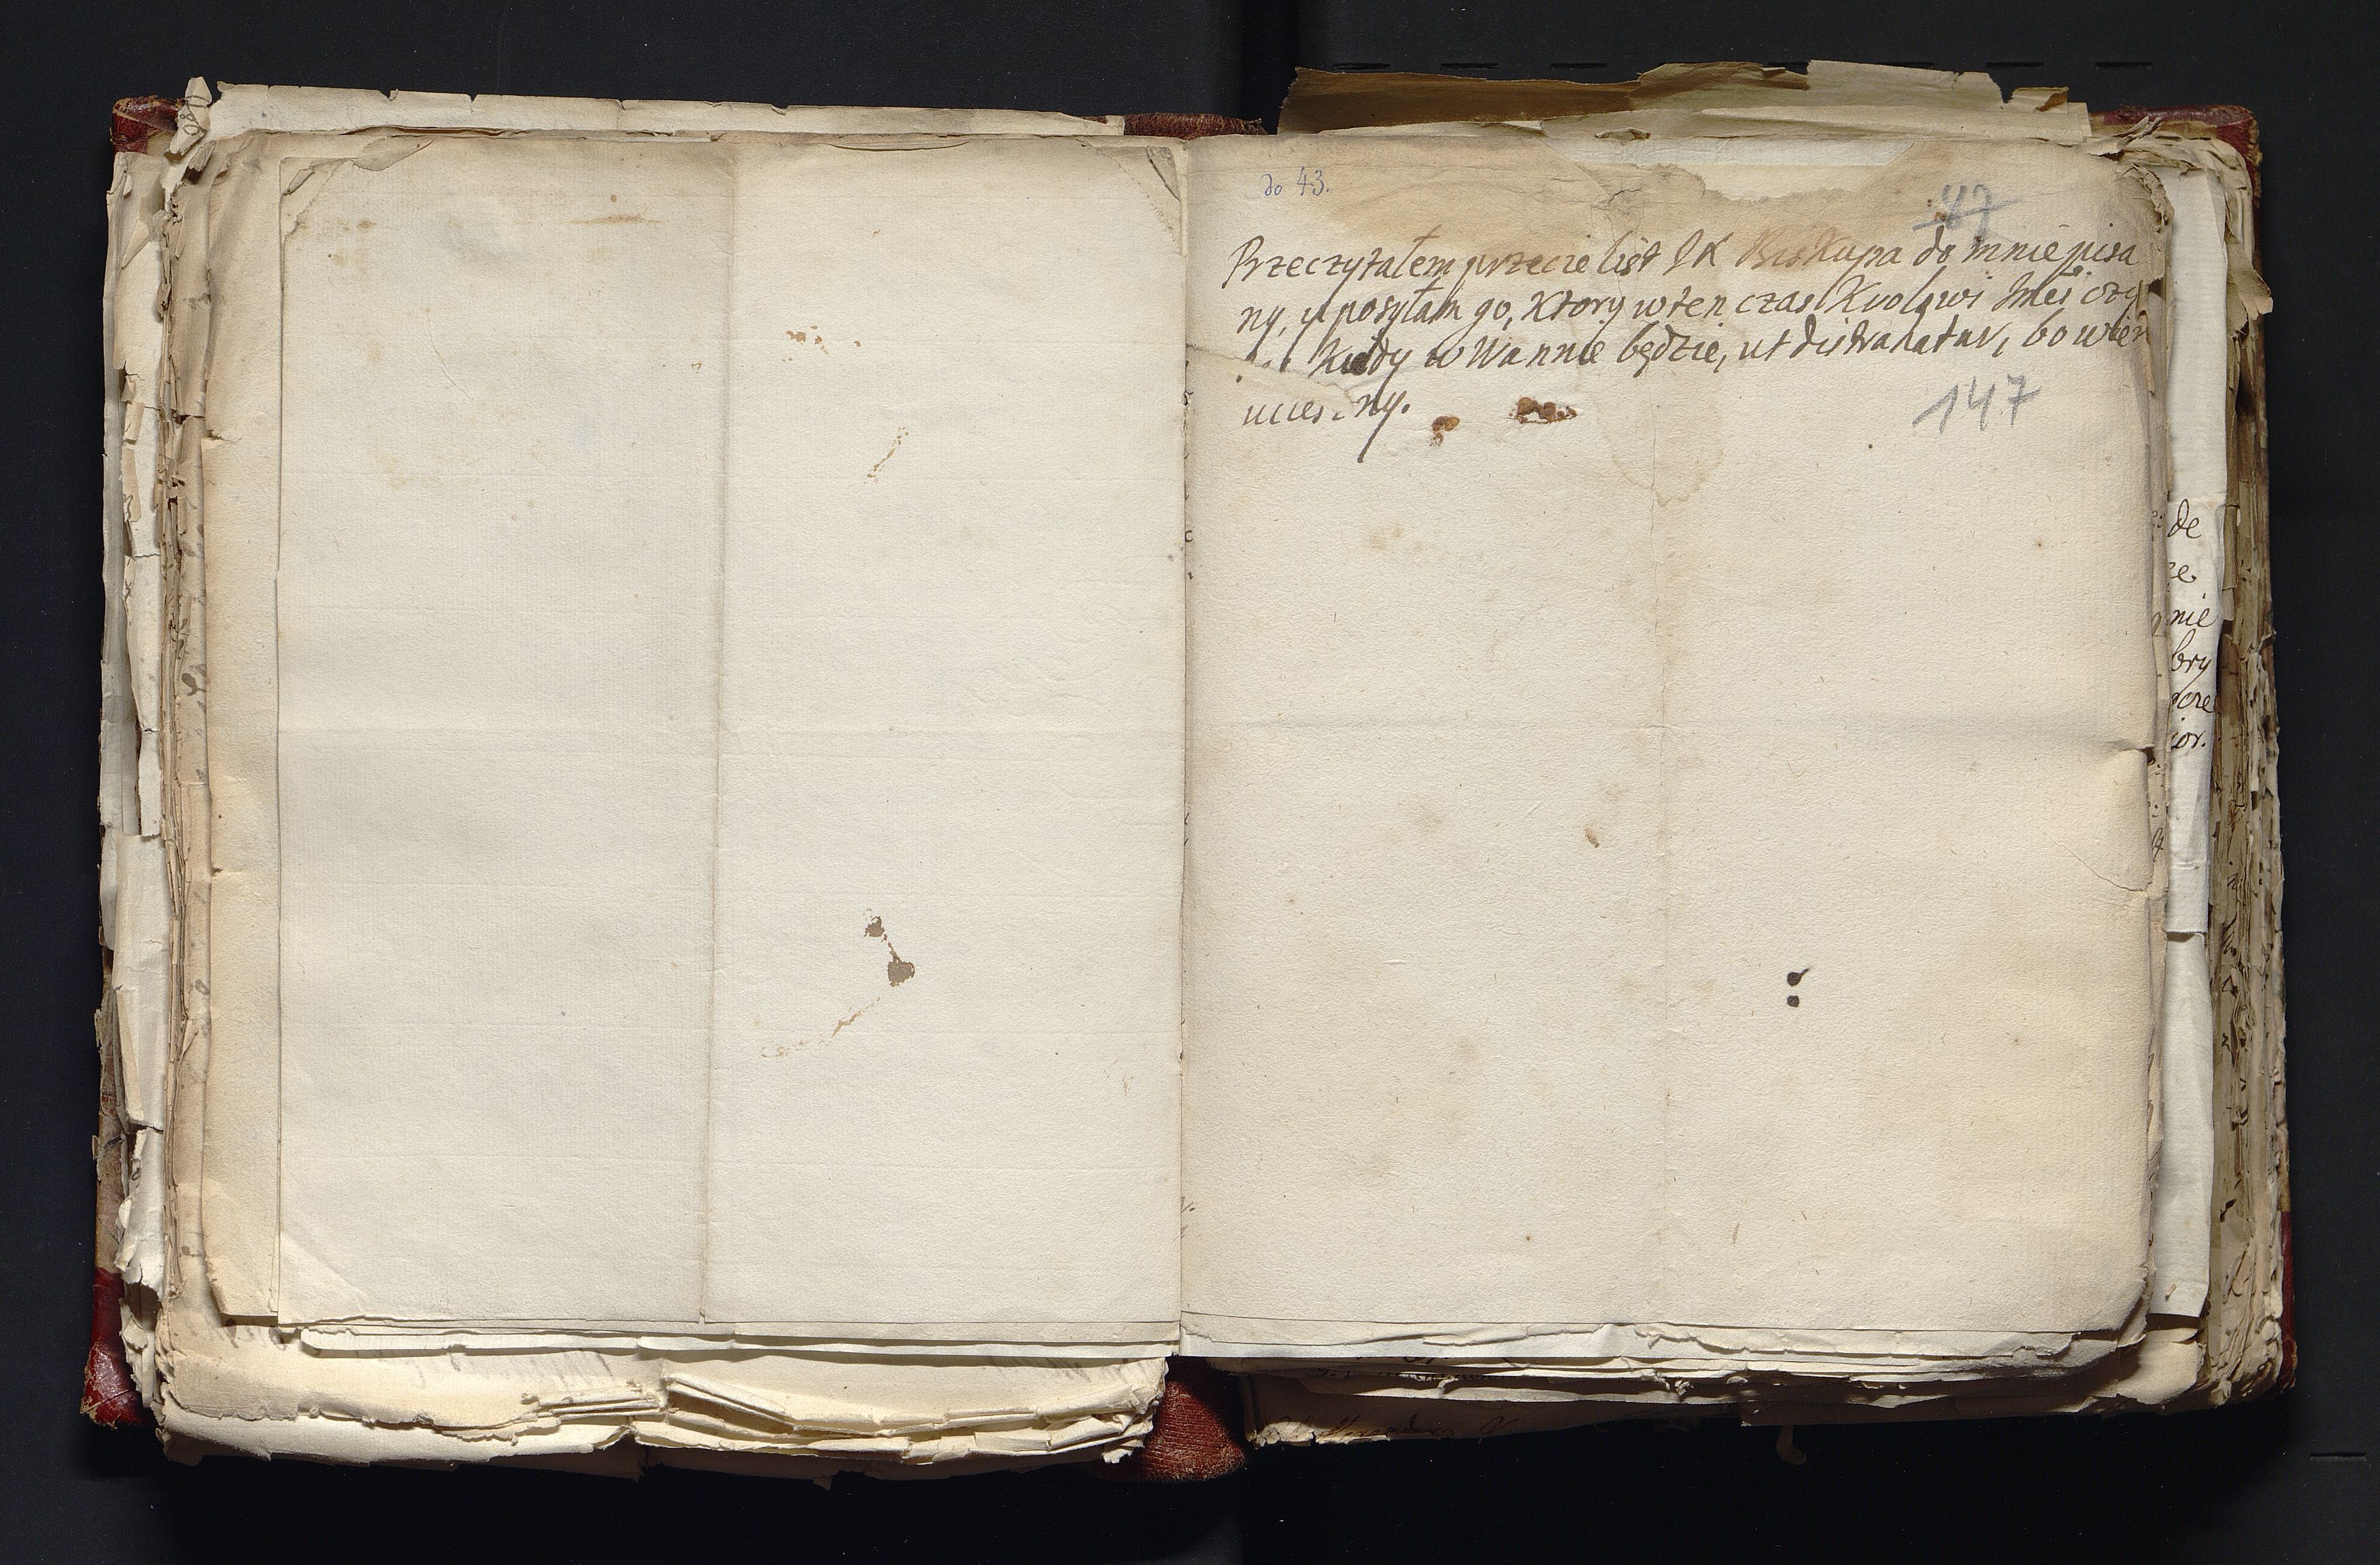 do 43.
87
Przeczytałem przecie list JK Biskupa do mnie pisa
ny, y posyłam go, ktory wten czas Krolowi Jmci czy
kiedy w Wannie będzie, ut distrahatur, bo
ucieszny.
147
de
nie